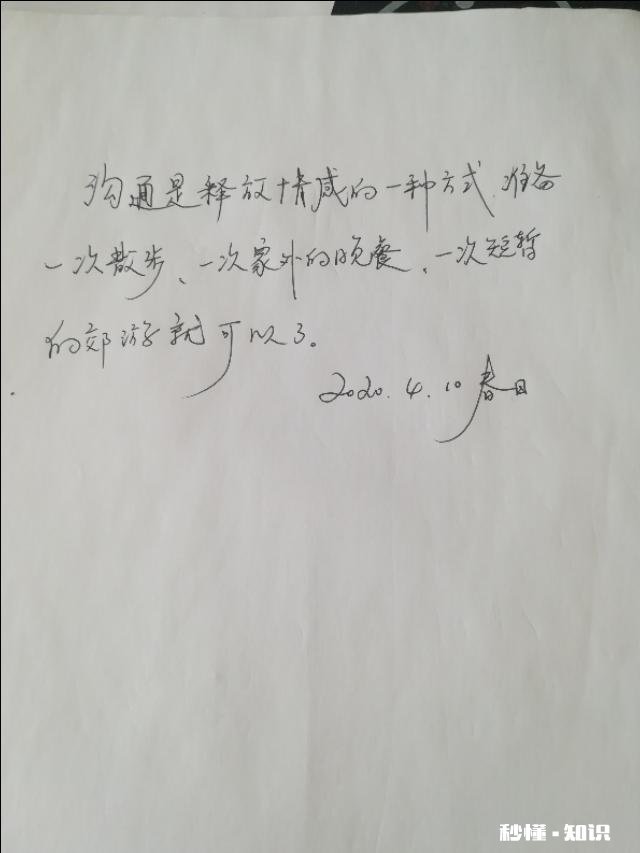 沟通是释放情感的一种方式,准备
一次散步、一次家外的晚餐、一次短暂
的郊游就可以了。
2020.4.10 春日
秒懂·知识